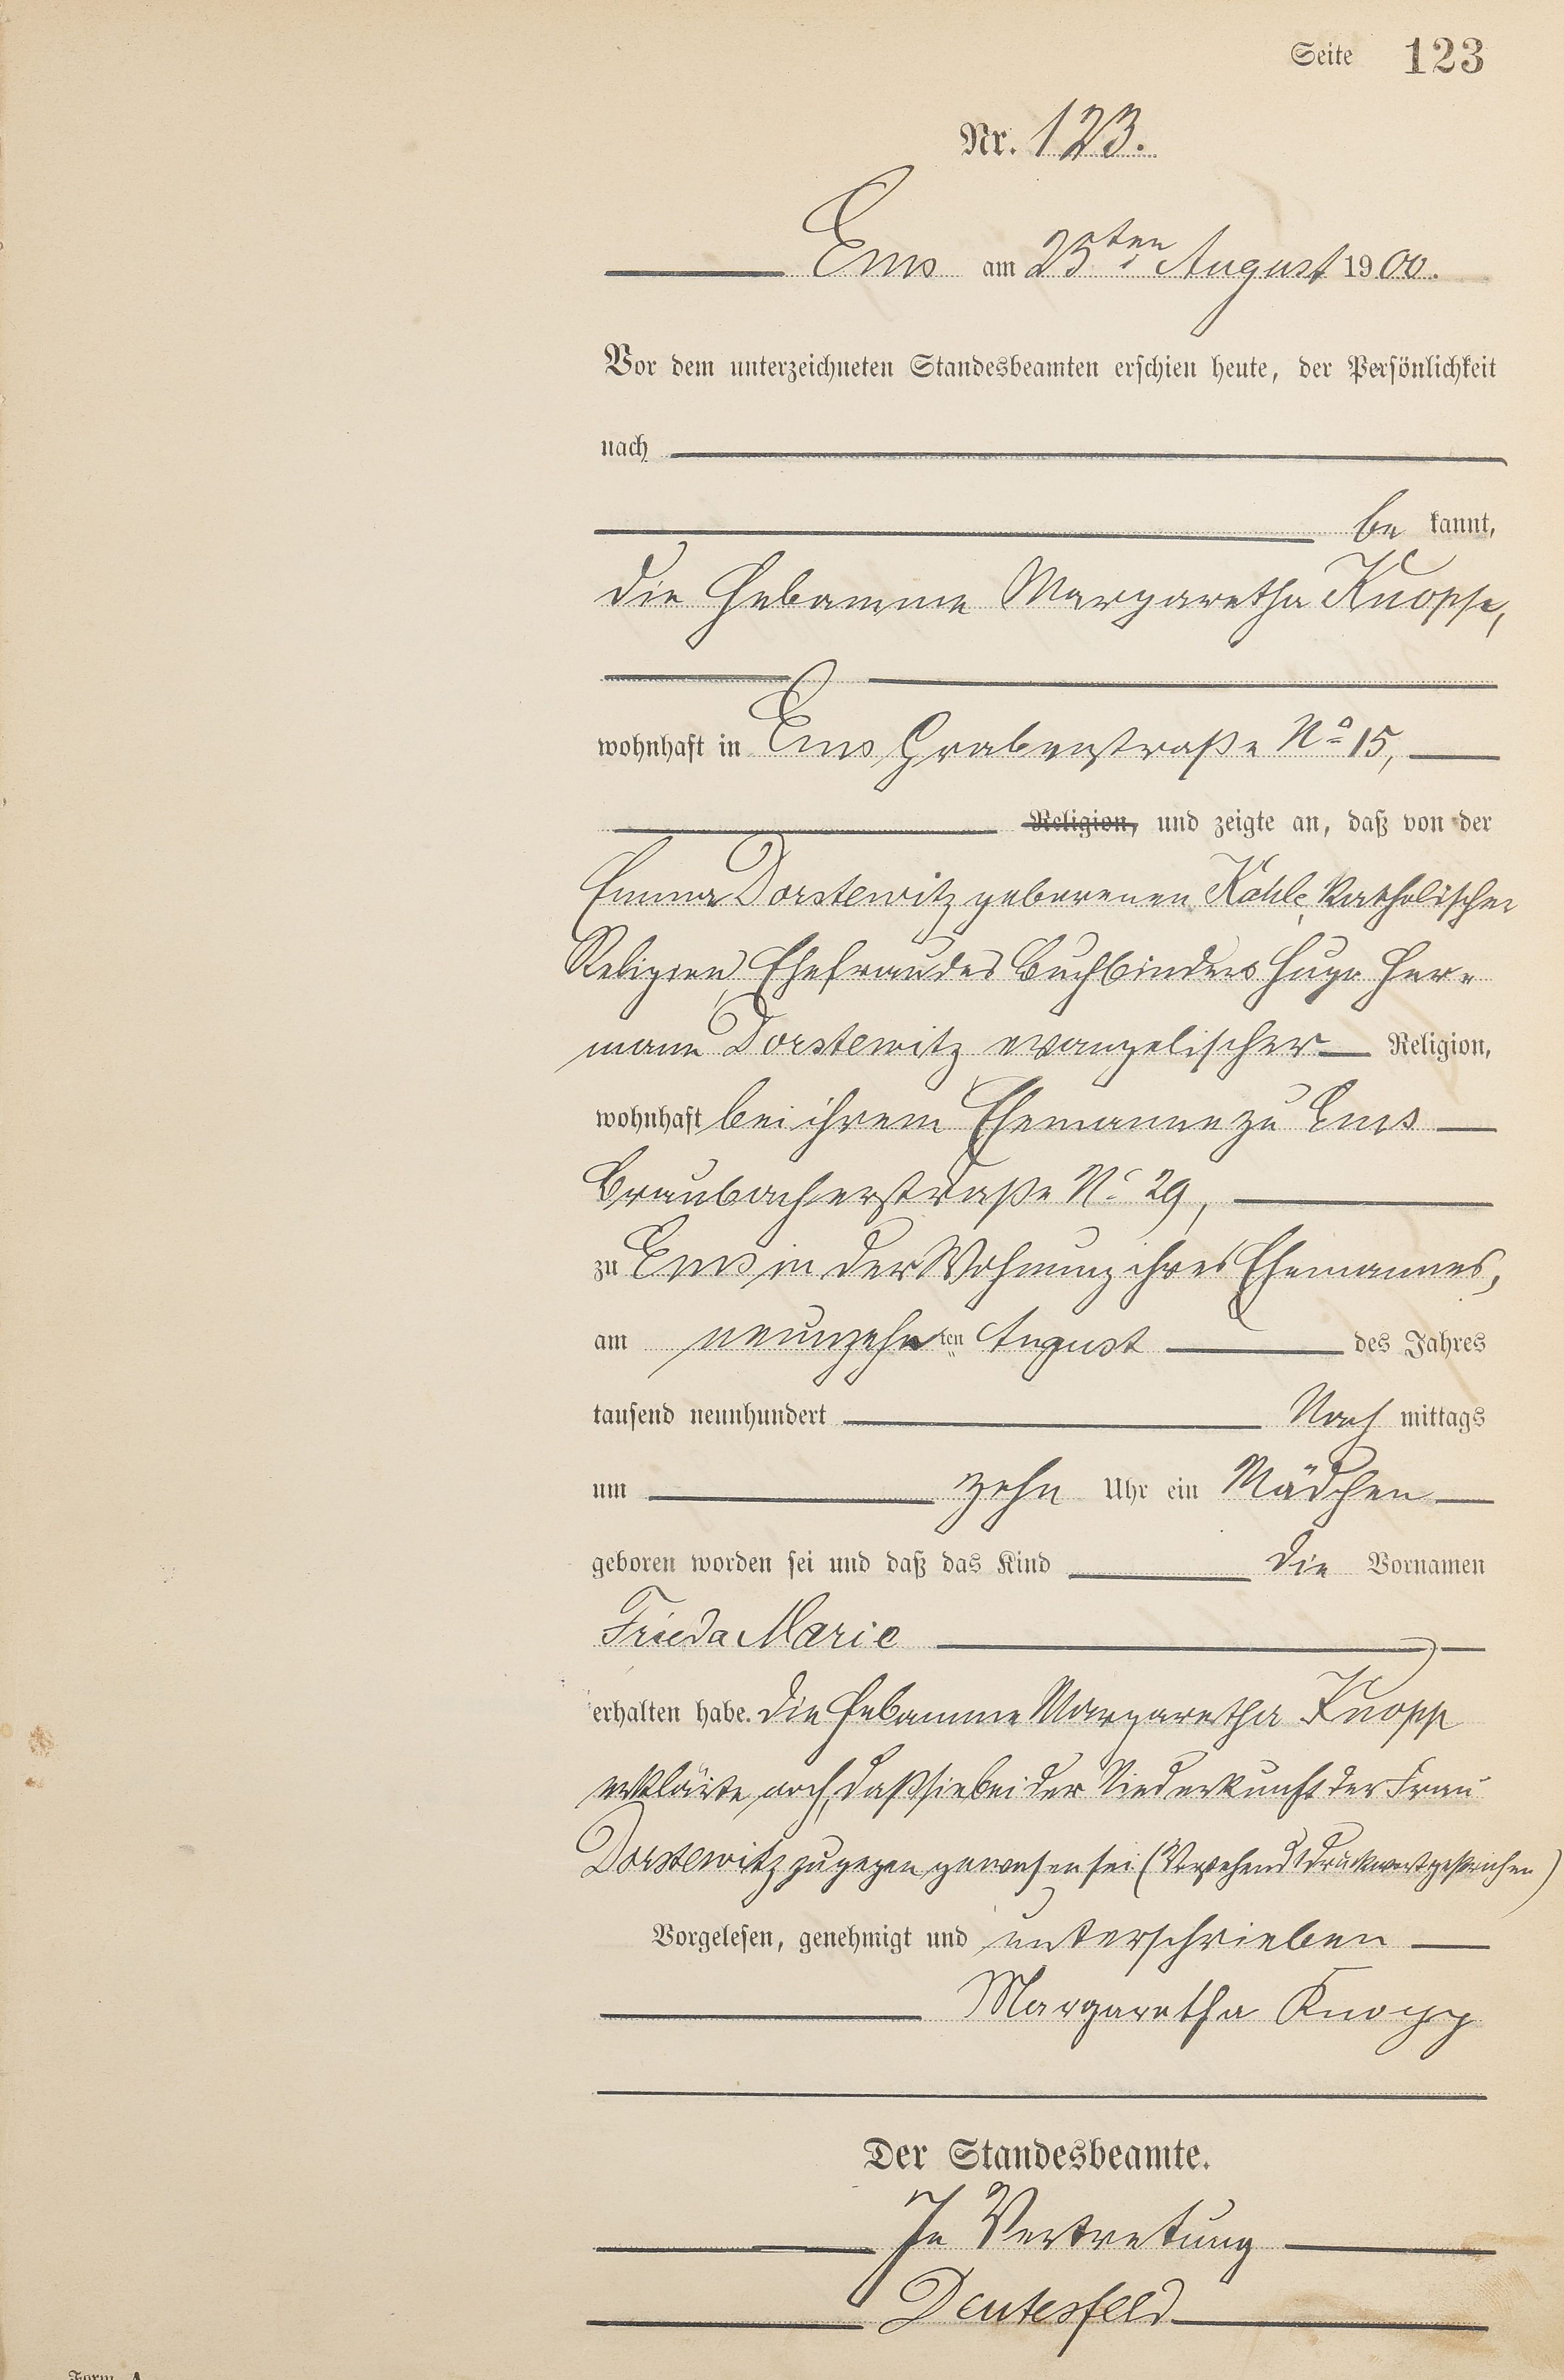 Seite 123
Nr. 123.
Ems am 25ten August 1900.
Vor dem unterzeichneten Standesbeamten erschien heute, der Persönlichkeit
nach
be kannt,
die Hebamme Margaretha Knopp,
wohnhaft in Ems Grabenstraße No 15,
Religion, und zeigte an, daß von der
Emma Dorstewitz geborenen Kahle, katholischer
Religion, Ehefrau des Buchbinders Hugo Her-
mann Dorstewitz evangelischer Religion,
wohnhaft bei ihrem Ehemanne zu Ems
Braubacherstraße No 29,
zu Ems in der Wohnung ihres Ehemannes,
am neunzehn ten August des Jahres
tausend neunhundert Nach mittags
um zehn Uhr ein Mädchen
geboren worden sei und daß das Kind die Vornamen
Frieda Marie
erhalten habe. Die Hebamme Margaretha Knopp
erklärte noch, daß sie bei der Niederkunft der Frau
Dorstewitz zugegen gewesen sei (Vorstehend 1 Druckwort gestrichen)
Vorgelesen, genehmigt und unterschrieben
Margaretha Knopp
Der Standesbeamte.
In Vertretung
Deutesfeld
Form. A